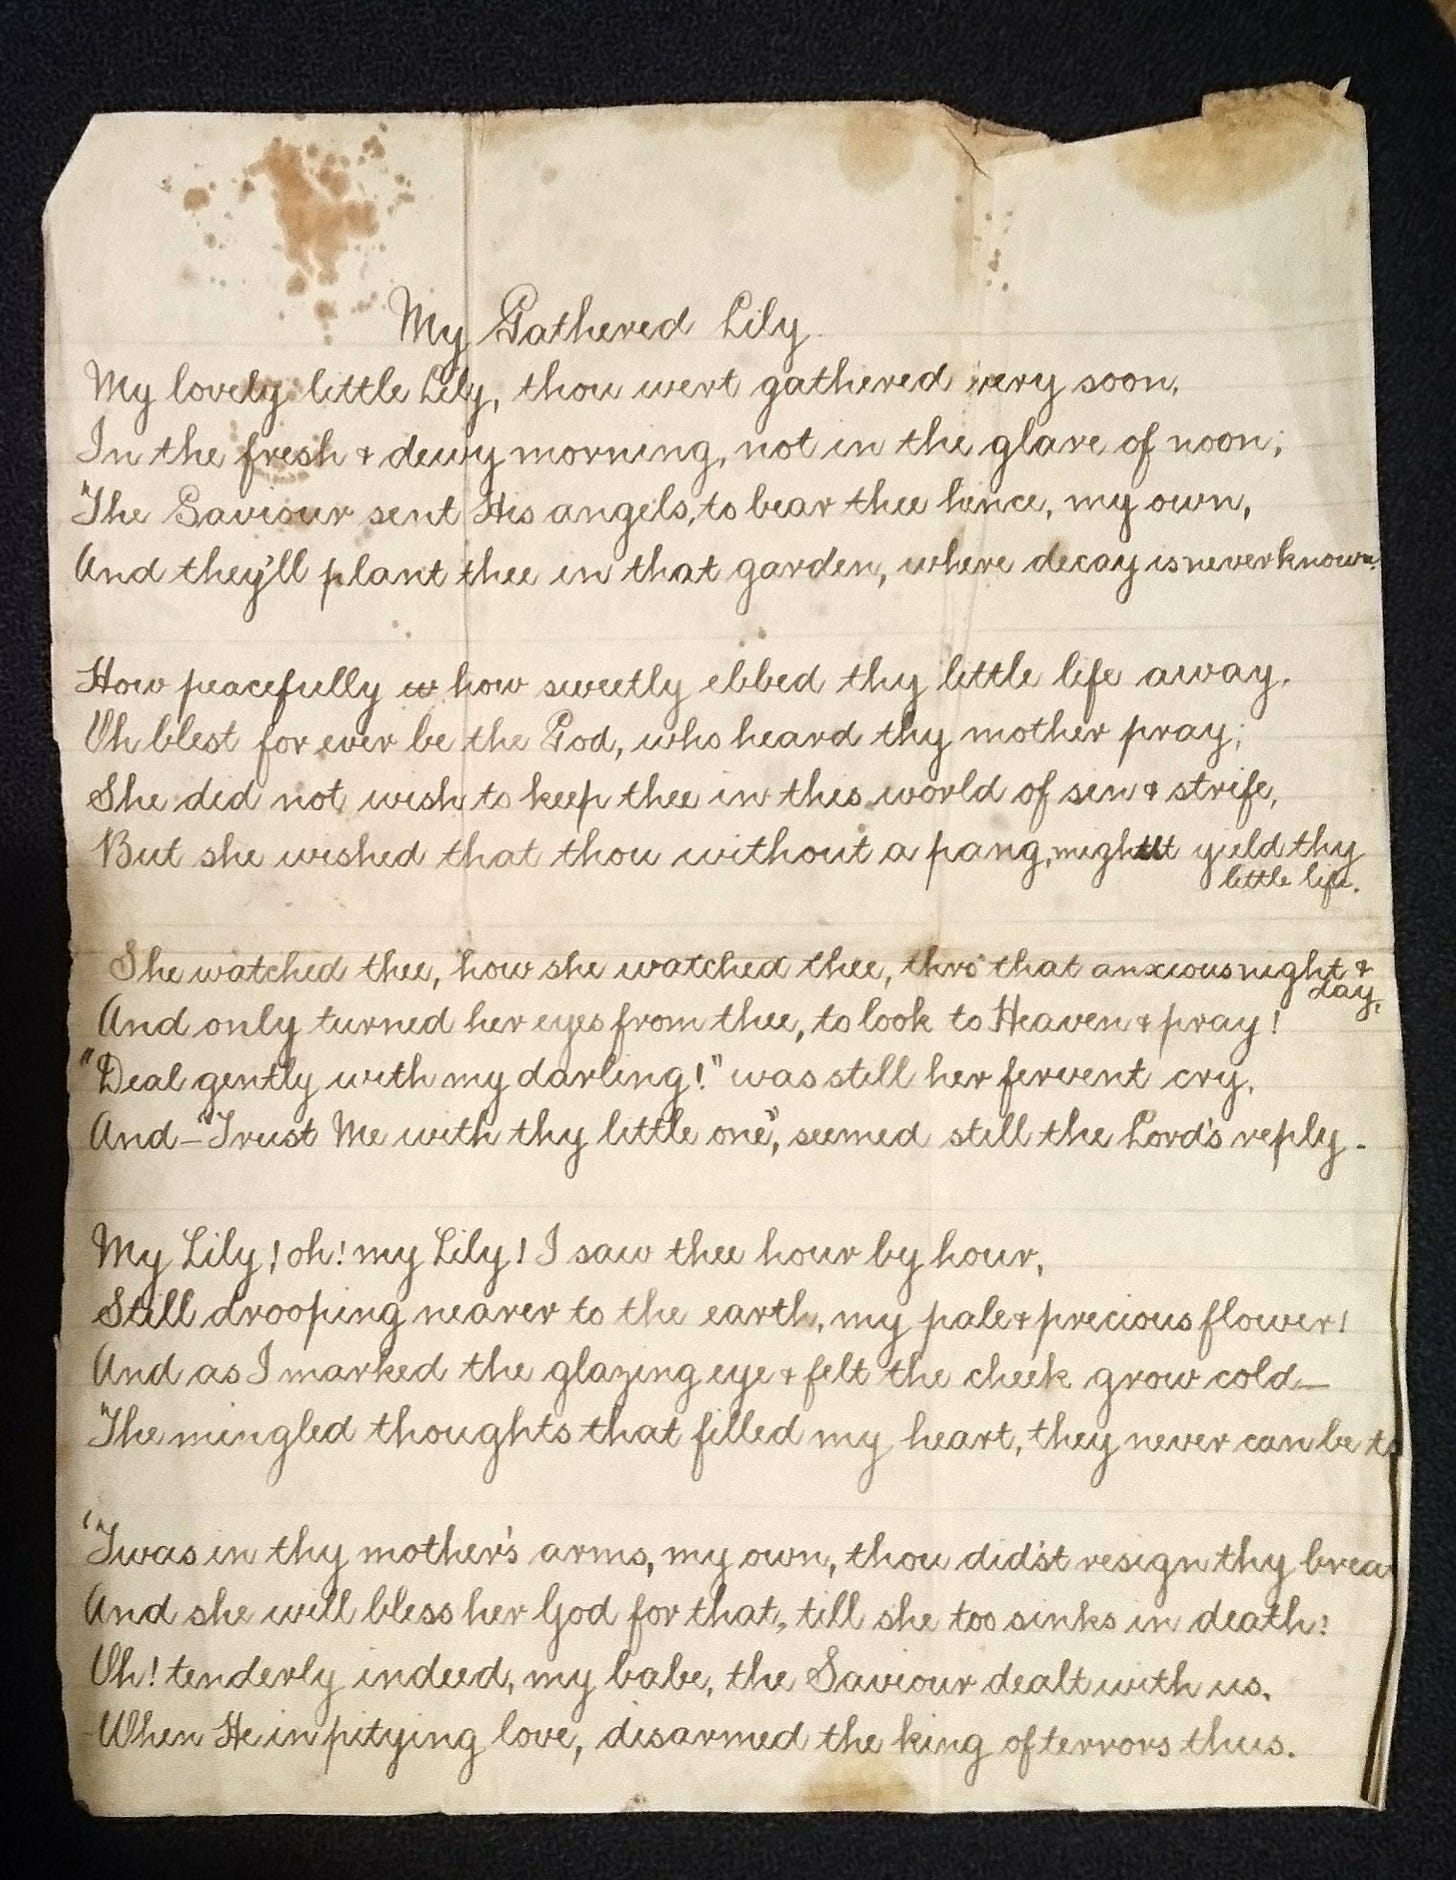 My Gathered Lily.
My lovely little Lily, thou wert gathered very soon,
In the fresh & dewy morning, not in the glare of noon;
The Saviour sent His angels, to bear thee hence, my own,
And they'll plant thee in that garden, where decay is never known.
How peacefully & how sweetly ebbed thy little life away.
Oh blest for ever be the God, who heard thy mother pray;
She did not wish to keep thee in this world of sin & strife,
But she wished that thou without a pang, might yield thy
little life.
She watched thee, how she watched thee, thro' that anxious night &
day,
And only turned her eyes from thee, to look to Heaven & pray!
"Deal gently with my darling!" was still her fervent cry,
And—"Trust Me with thy little one", seemed still the Lord's reply.
My Lily! oh! my Lily! I saw thee hour by hour,
Still drooping nearer to the earth, my pale & precious flower!
And as I marked the glazing eye & felt the cheek grow cold—
The mingled thoughts that filled my heart, they never can be
'Twas in thy mother's arms, my own, thou did'st resign thy
And she will bless her God for that, till she too sinks in death!
Oh! tenderly indeed, my babe, the Saviour dealt with us,
When He in pitying love, disarmed the king of terrors thus.